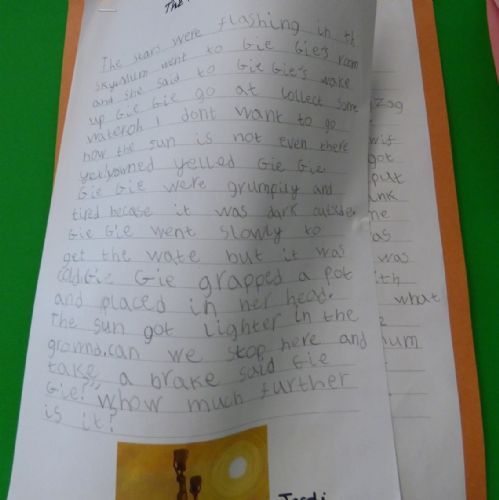 The
The stars were flashing in th
sky.Mum went to Gie Gie's room
and she said to Gie Gie's wake
up Gie Gie go at collect some
water.oh I dont want to go
now the sun is not even there
yet!yowned yelled Gie Gie
Gie Gie were grumpily and
tired becase it was dark outside.
Gie Gie went slowly to
get the wate but it was
cold.Gie Gie grapped a pot
and placed in her head.
The sun got lighter in the
ground.can we stop here and
take a brake said Gie
Gie? "whow much further
is it?
zag
wis
got
put
ink
he
as
was
ith
what
num